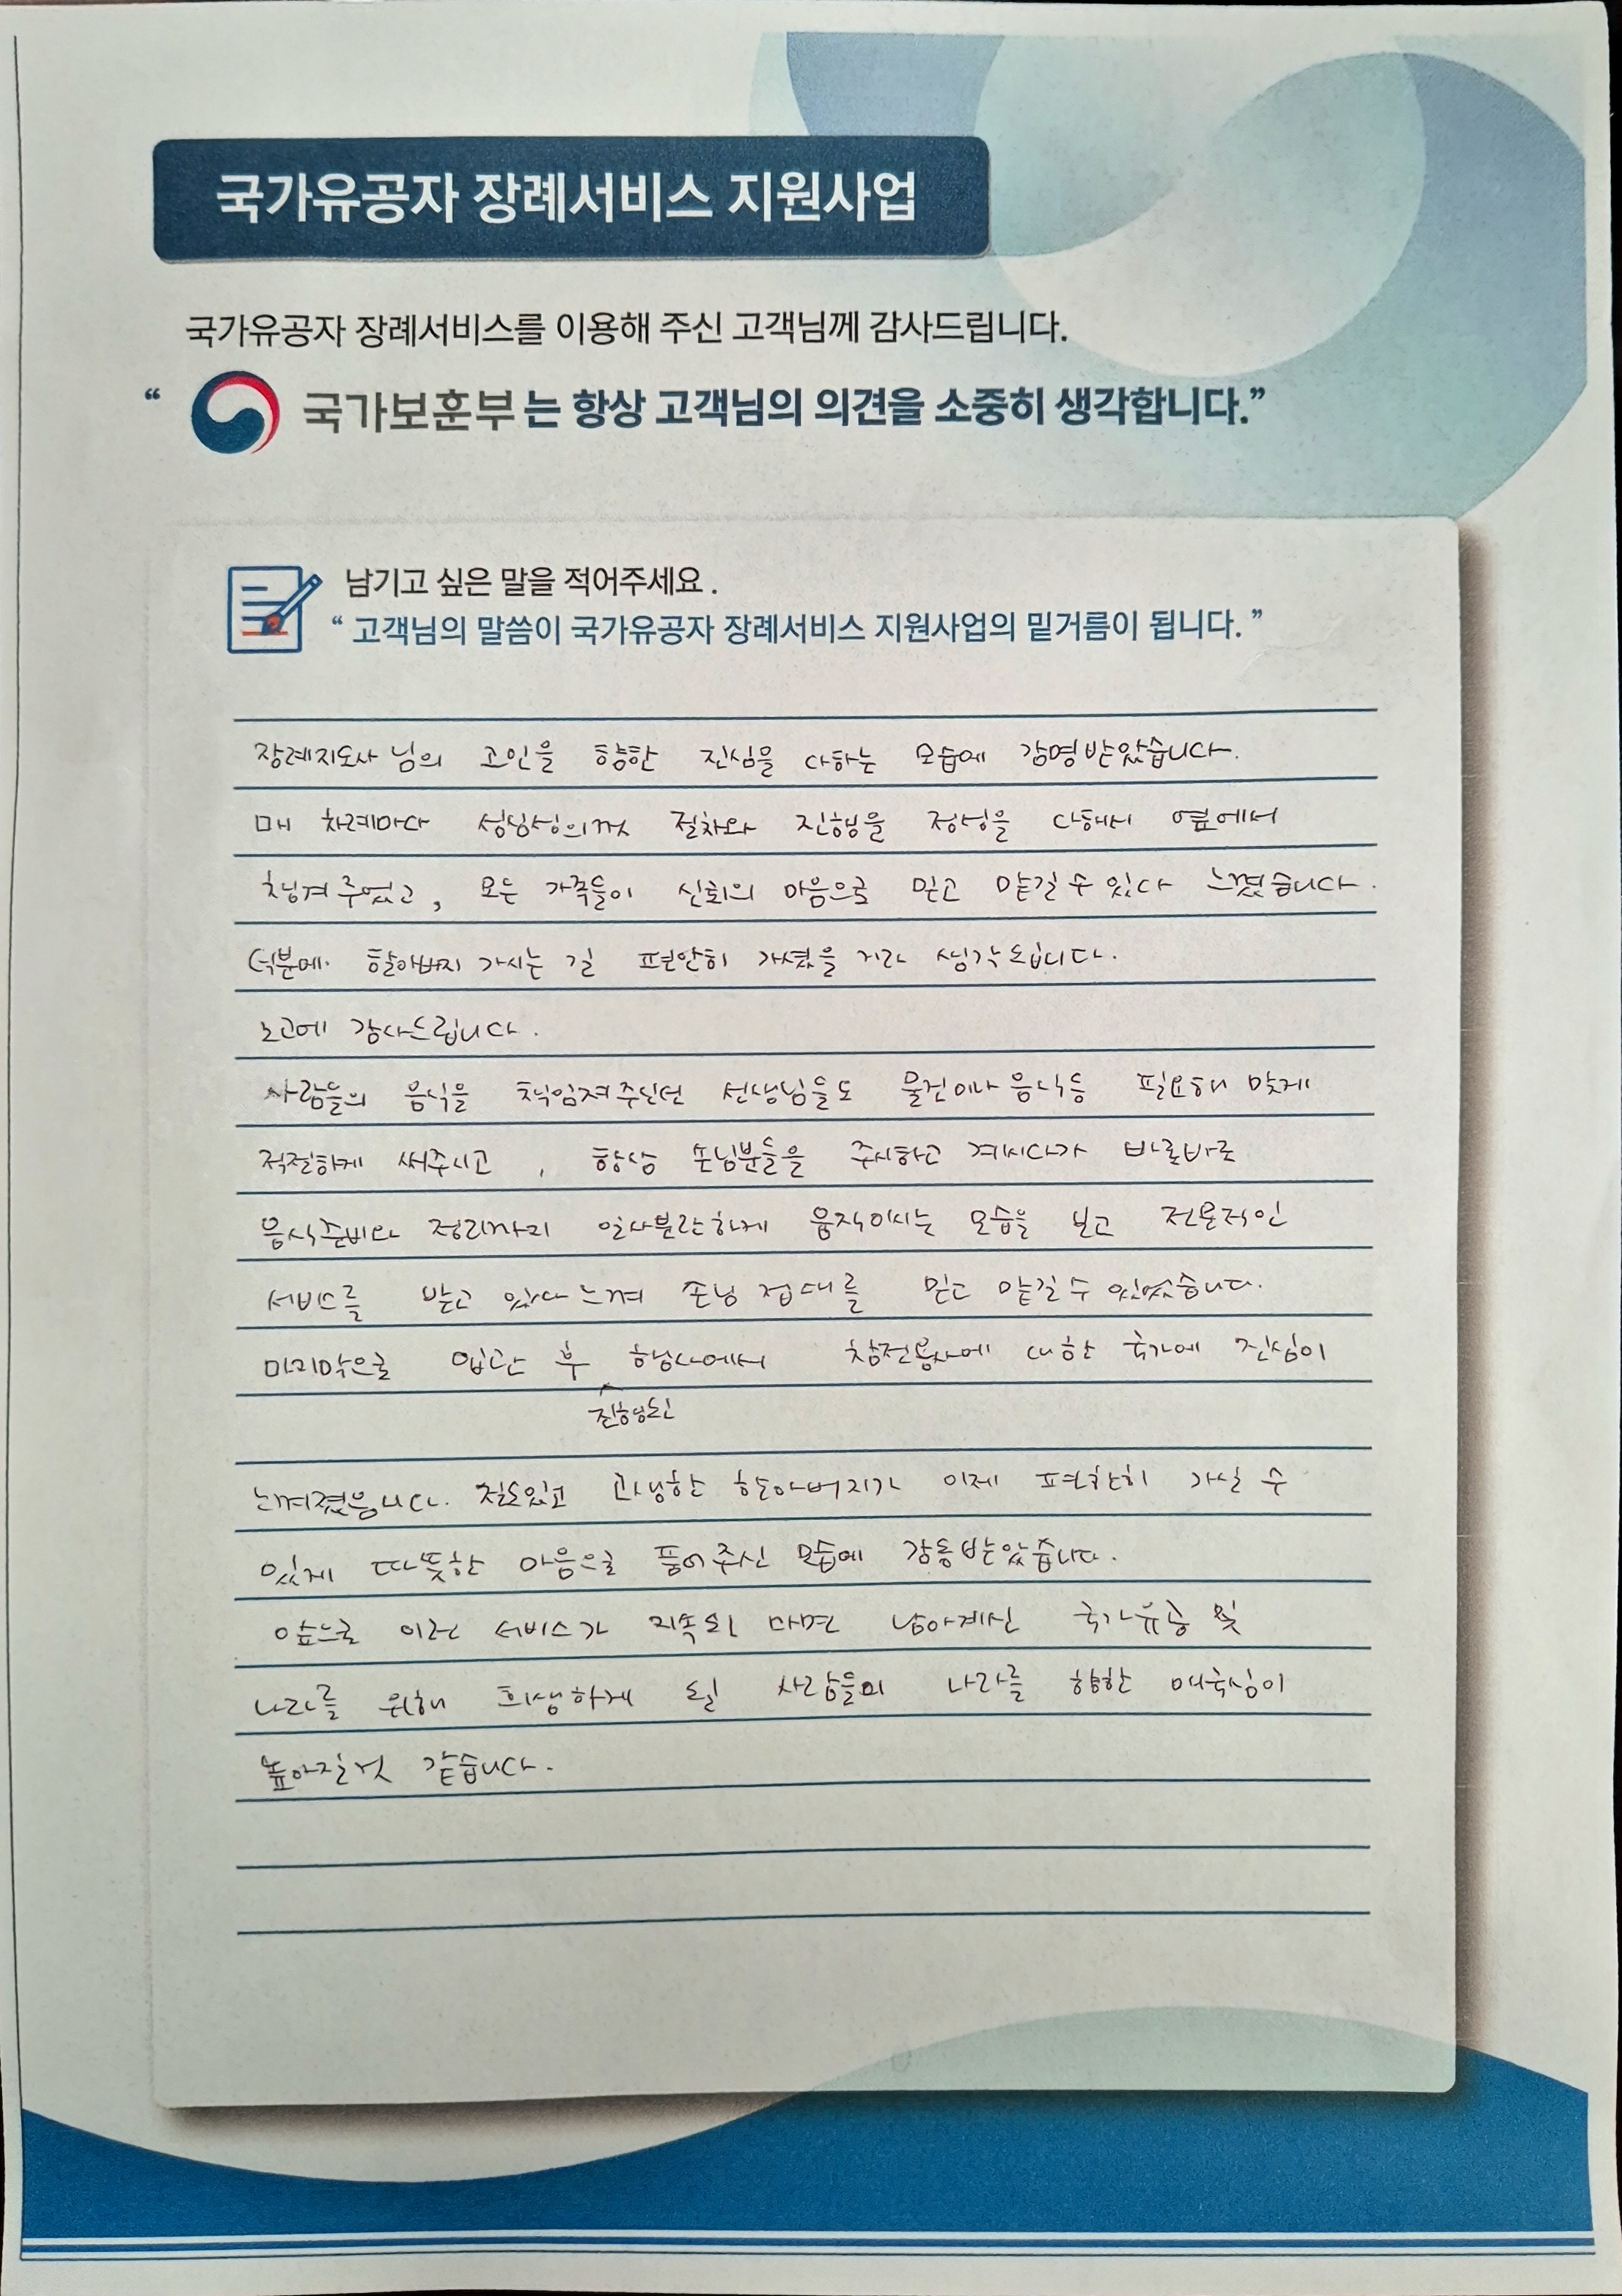 국가유공자 장례서비스 지원사업
국가유공자 장례서비스를 이용해 주신 고객님께 감사드립니다.
“ 국가보훈부는 항상 고객님의 의견을 소중히 생각합니다.”
남기고 싶은 말을 적어주세요.
“ 고객님의 말씀이 국가유공자 장례서비스 지원사업의 밑거름이 됩니다. ”
장례지도사님의 고인을 향한 진심을 다하는 모습에 감명받았습니다.
매 차례마다 성심성의껏 절차와 진행을 정성을 다해서 옆에서
챙겨주었고, 모든 가족들이 신뢰의 마음으로 믿고 맡길 수 있다 느꼈습니다.
덕분에 할아버지 가시는 길 편안히 가셨을 거라 생각됩니다.
노고에 감사드립니다.
사람들의 음식을 책임져주신 선생님들도 물건이나 음식등 필요해 맞게
적절하게 써주시고, 항상 손님분들을 주시하고 계시다가 바로바로
음식준비와 정리까지 일사분란하게 움직이시는 모습을 보고 전문적인
서비스를 받고 있다 느껴 손님 접대를 믿고 맡길 수 있었습니다.
마지막으로 입관 후 행사에서 참전용사에 대한 국가에 진심이
진행된
느껴졌습니다. 고생한 할아버지가 이제 편안히 가실 수
있게 따뜻한 마음으로 품어주신 모습에 감동받았습니다.
앞으로 이런 서비스가 지속된다면 남아계신 국가유공 및
나라를 위해 희생하게 될 사람들의 나라를 향한 애국심이
높아질것 같습니다.